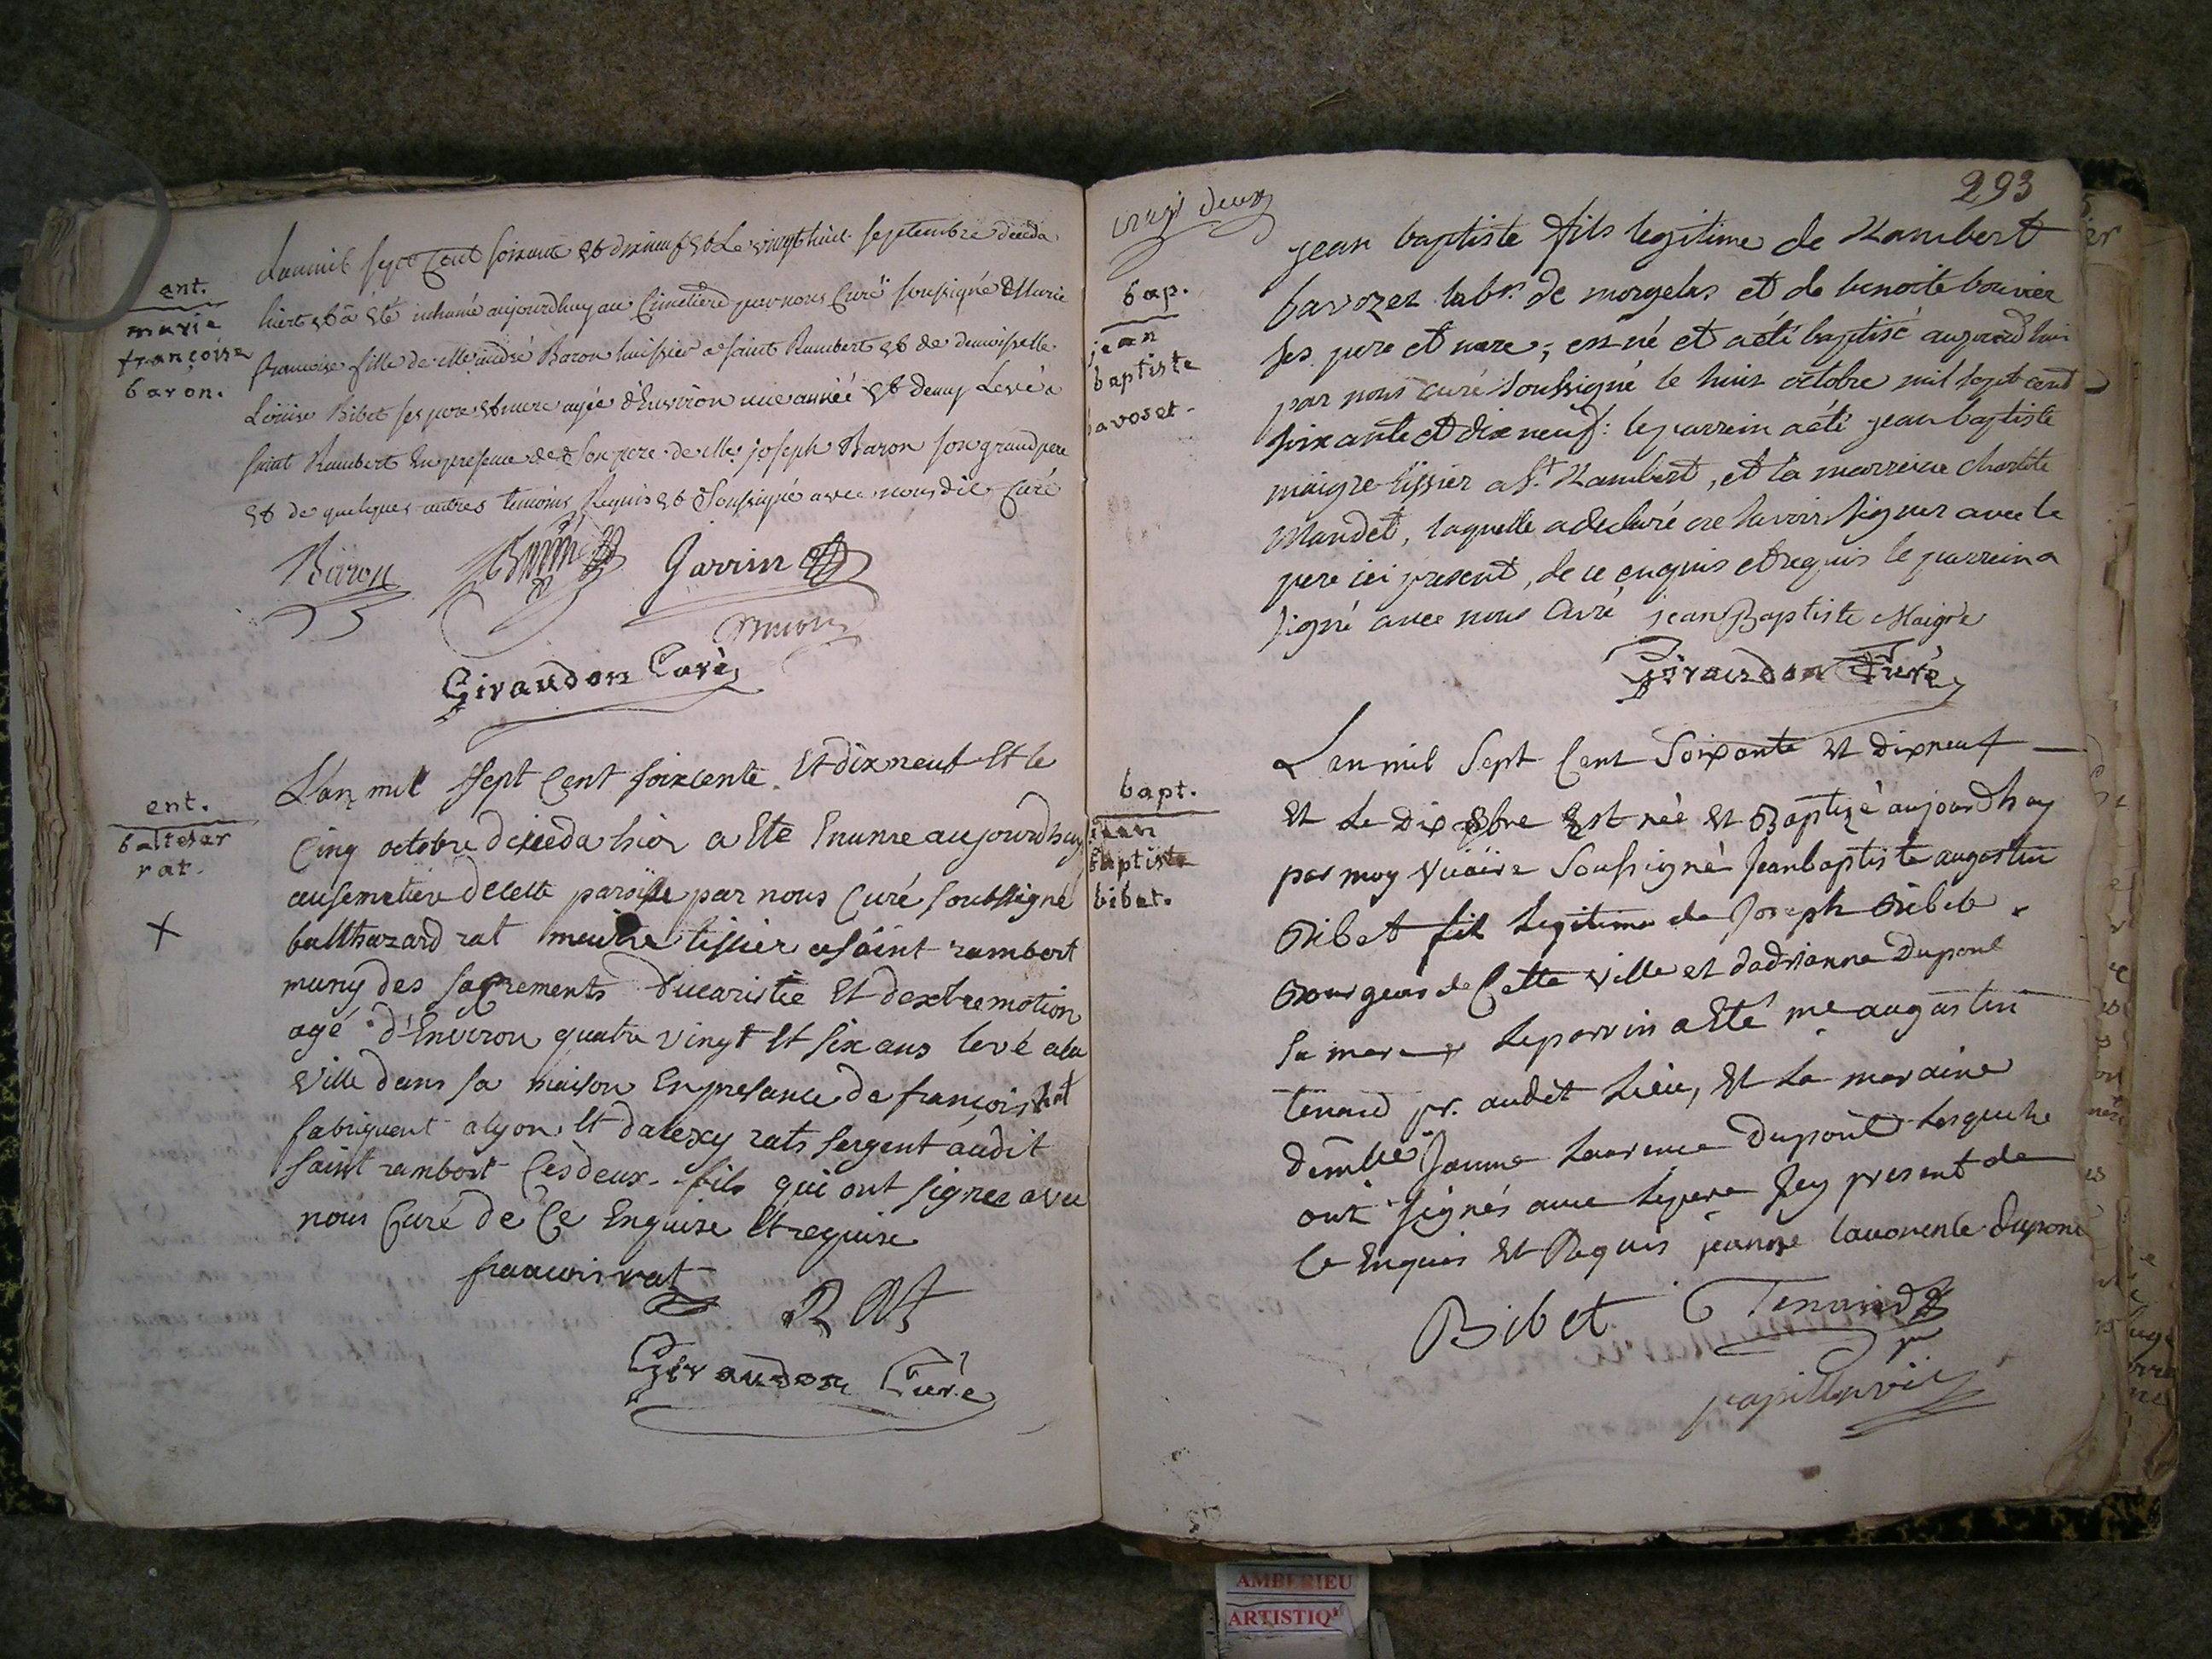 ent.
marie
françoise
baron.
Lanmil sept Cent soixante et dixneuf et Le vingthuit septembre deceda
hiert et a été inhumé aujourdhuy au Cimetiere par nous Curé soussigné Marie
francoise fille de Me andré Baron huissier a saint Rambert et de demoiselle
Louise Bibet ses pere et mere agée d'Environ une année et demy Levé a
saint Rambert En presence de son pere de Me joseph Baron son grand pere
et de quelques autres temoins Requis et Soussigné avec nous dit Curé
Baron Garrin
Giraudon Curé
ent.
baltesar
rat.
X
L'an mil sept Cent soixcente Et dix neuf Et le
Cinq octobre deceda hier a Eté Enumre aujourdhuy
au semetiere de Cette paroisse par nous Curé soubssigné
balthazard rat maitre tissier a saint rambert
muny des sacrements d'ucaristie Et dextremotion
agé d'Environ quatre vingt Et six ans levé a la
Ville dans sa maison En presance de françois Rat
fabriquent a lyon Et dalexy rats sergent audit
saint rambert Ces deux fils qui ont signee avec
nous Curé de Ce Enquise Et requise
francois rat
R At
Giraudon Curé
vingt deux
293
bap.
jean
baptiste
avoset.
jean baptiste fils legitime de Rambert
bavozez labr. de morgelas et de benoite bouvier
ses pere et mere, est né et a été baptisé aujourdhui
par nous curé soussigné le huit octobre mil sept cent
soixante et dix neuf: le parrein a été jean baptiste
maigre tissier a St. Rambert, et la marreine charlote
Mandet, laquelle a declaré ne savoir signer avec le
pere ici present, de ce enquis et requis le parrein a
signé avec nous Curé jean Baptiste Maigre
Giraudon Curé
bapt.
jean
baptiste
bibet.
L'an mil Sept Cent Soixante Et dixneuf
Et Le Dix 8bre Est née Et Baptizé aujourdhuy
par moy Vicaire Soussigné Jeanbaptiste augustin
Bibet fils Legitime de Joseph Bibet
Bourgeois de Cette Ville et dadrianne Dupont
Sa mere Le parrin a Eté me augustin
tenand pr. audit Lieu, Et La maraine
demlle Jeanne Laurence Dupont Lesquels
ont signés avec Le pere Jcy present de
Ce Enquis Et Requis jeanne laurence dupont
Bibet Tenand
papillon vic
AMBERIEU
ARTISTIQ